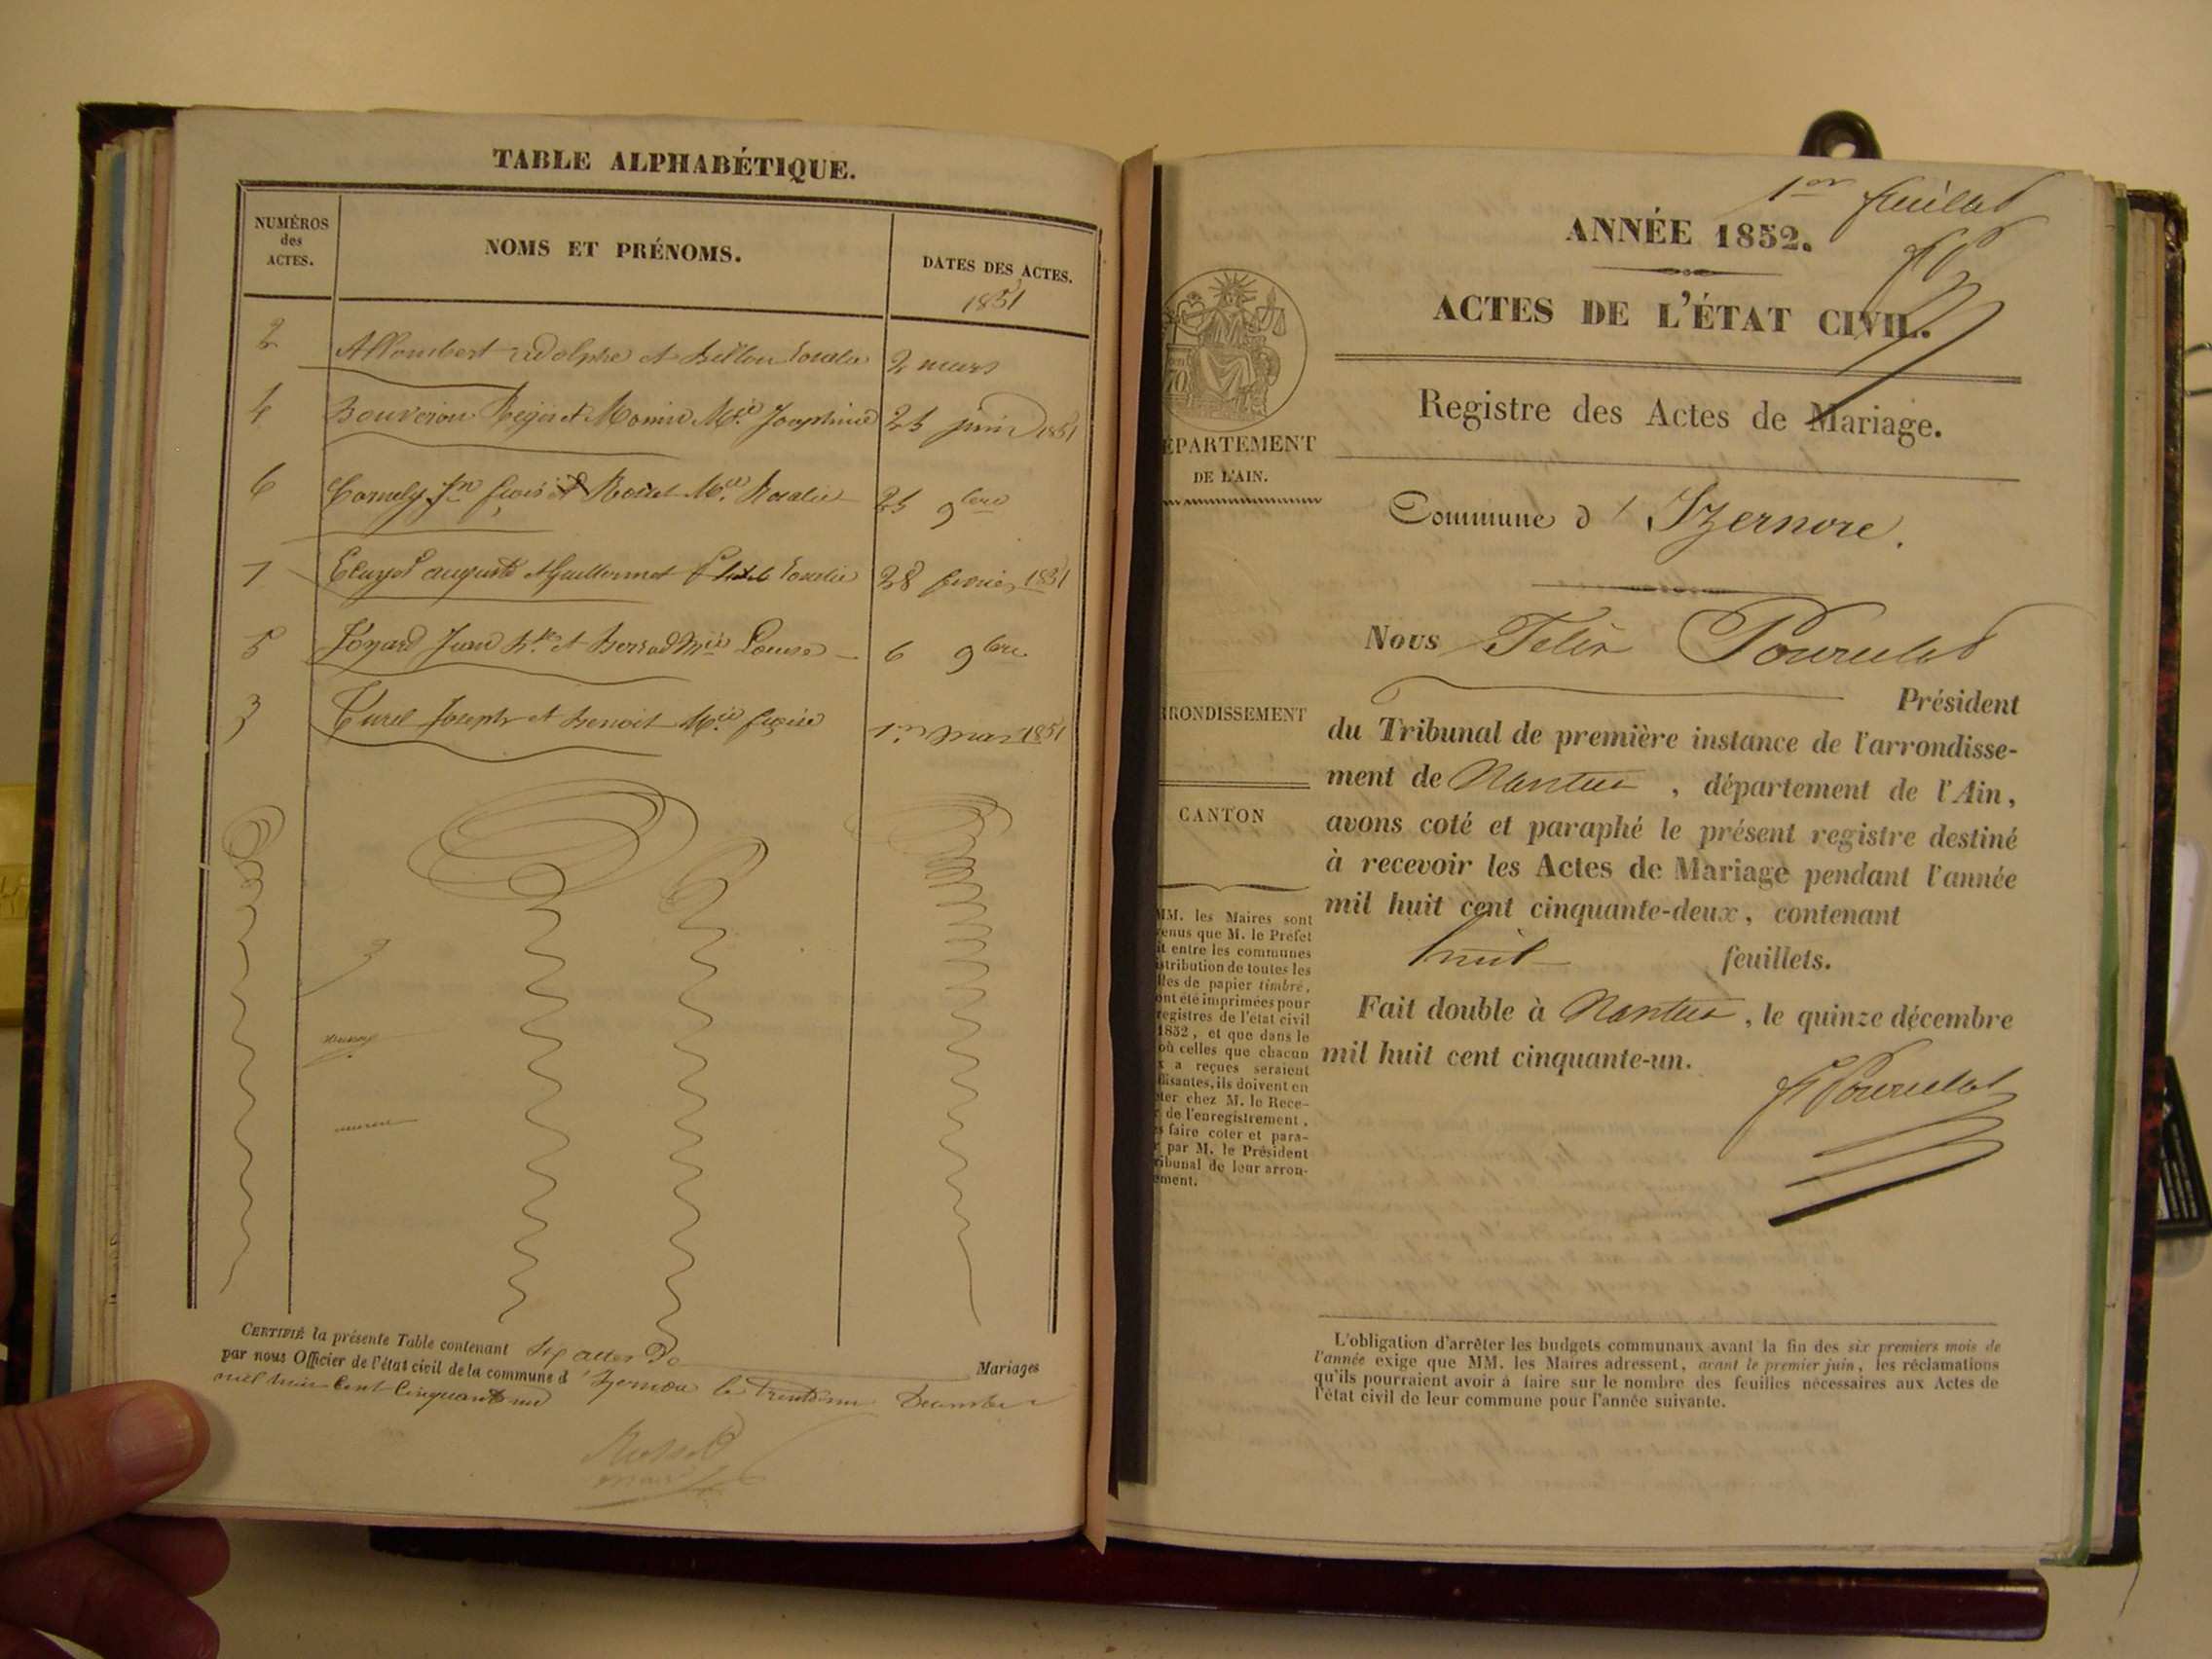 TABLE ALPHABÉTIQUE.
NUMÉROS
des
ACTES.
NOMS ET PRÉNOMS.
DATES DES ACTES.
1851
2 Allombert adolphe et Billon 2 mars
4 Bouveiron Régis et Monin Mie Joséphine 25 juin 1851
6 Jn frçois et Mie Rosalie 25 9bre
1 auguste et Guillermet 28 février 1851
5 Jean Bte et Mie Louise 6 9bre
3 Curel Joseph et Benoit Mie frçoise 1er mars 1851
CERTIFIÉ la présente Table contenant Six actes De Mariages
par nous Officier de l'état civil de la commune d'Izernore le trente un Décembre
mil huit Cent Cinquante un
1er feuillet
ANNÉE 1852.
ACTES DE L'ÉTAT CIVIL.
Registre des Actes de Mariage.
Commune d'Izernore.
Nous Félix Pourulat
Président
du Tribunal de première instance de l'arrondisse-
ment de Nantua, département de l'Ain,
avons coté et paraphé le présent registre destiné
à recevoir les Actes de Mariage pendant l'année
mil huit cent cinquante-deux, contenant
huit feuillets.
Fait double à Nantua, le quinze décembre
mil huit cent cinquante-un.
F Pourulat
ÉPARTEMENT
DE L'AIN.
RONDISSEMENT
CANTON
MM. les Maires sont
venus que M. le Préfet
it entre les communes
stribution de toutes les
lles de papier timbré,
ont été imprimées pour
registres de l'état civil
1852, et que dans le
où celles que chacun
x a reçues seraient
ffisantes, ils doivent en
ter chez M. le Rece-
r de l'enregistrement,
s faire coter et para-
r par M. le Président
ribunal de leur arron-
ement.
L'obligation d'arrêter les budgets communaux avant la fin des six premiers mois de
l'année exige que MM. les Maires adressent, avant le premier juin, les réclamations
qu'ils pourraient avoir à faire sur le nombre des feuilles nécessaires aux Actes de
l'état civil de leur commune pour l'année suivante.